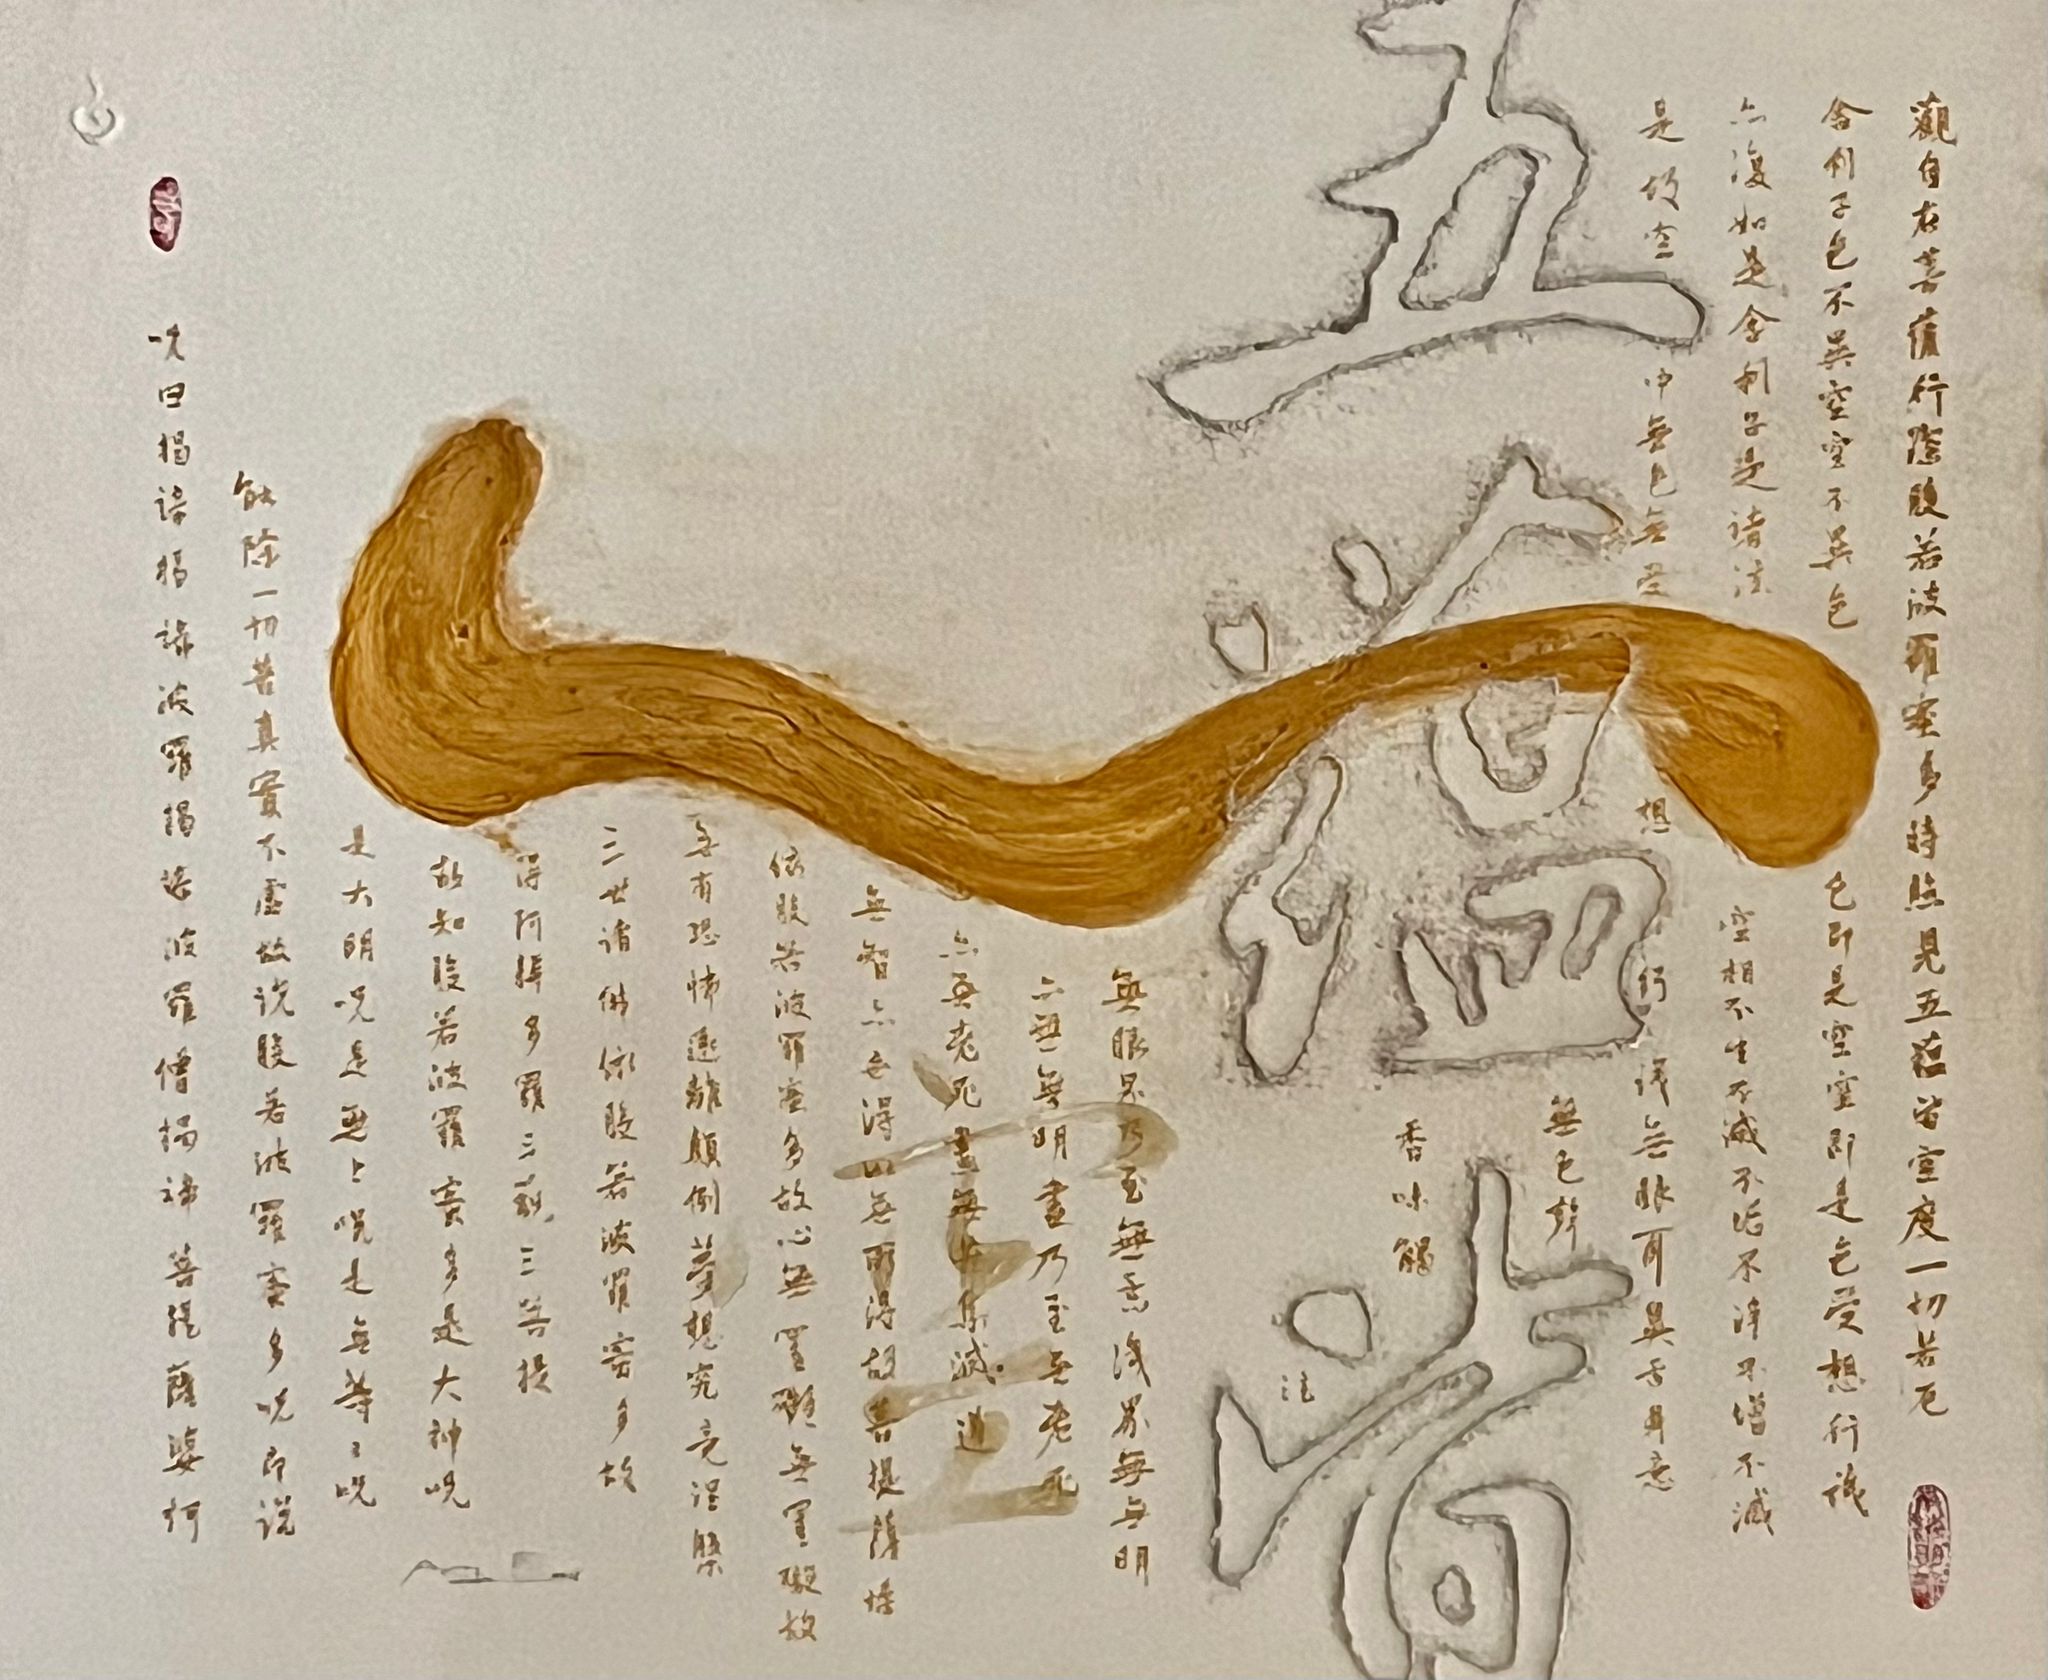 觀自在菩薩行深般若波羅蜜多時照見五蘊皆空度一切苦厄
舍利子色不異空空不異色
色即是空空即是色受想行識
亦復如是舍利子是諸法
空相不生不滅不垢不淨不增不減
是故空中無色無受
想行識無眼耳鼻舌身意
無色聲
香味觸
法
無眼界乃至無意識界無無明
亦無無明盡乃至無老死
亦無老死盡無苦集滅道
無智亦無得以無所得故菩提薩埵
依般若波羅蜜多故心無罣礙無罣礙故
無有恐怖遠離顛倒夢想究竟涅槃
三世諸佛依般若波羅蜜多故
得阿耨多羅三藐三菩提
故知般若波羅蜜多是大神咒
是大明咒是無上咒是無等等咒
能除一切苦真實不虛故說般若波羅蜜多咒即說
咒曰揭諦揭諦波羅揭諦波羅僧揭諦菩提薩婆訶
五
蘊
皆
空